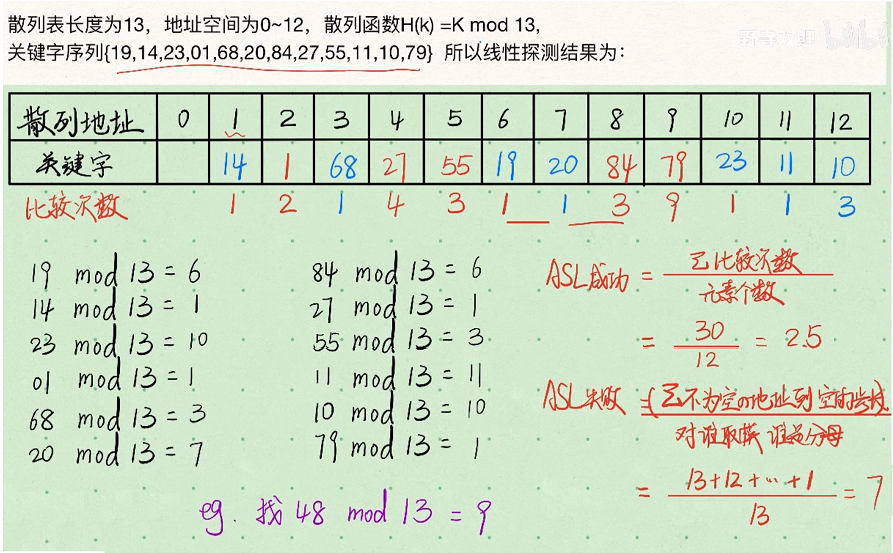 散列表长度为13，地址空间为0~12，散列函数H(k) =K mod 13,
关键字序列{19,14,23,01,68,20,84,27,55,11,10,79} 所以线性探测结果为：
散列地址 0 1 2 3 4 5 6 7 8 9 10 11 12
关键字 14 1 68 27 55 19 20 84 79 23 11 10
比较次数 1 2 1 4 3 1 1 3 9 1 1 3
19 mod 13 = 6
14 mod 13 = 1
23 mod 13 = 10
01 mod 13 = 1
68 mod 13 = 3
20 mod 13 = 7
84 mod 13 = 6
27 mod 13 = 1
55 mod 13 = 3
11 mod 13 = 11
10 mod 13 = 10
79 mod 13 = 1
ASL成功 = Σ比较次数
元素个数
= 30/12 = 2.5
ASL失败 = (Σ不为空的地址到空的步长)
对谁取模 谁是分母
= 13+12+…+1
13
= 7
eg. 找 48 mod 13 = 9
bilibili